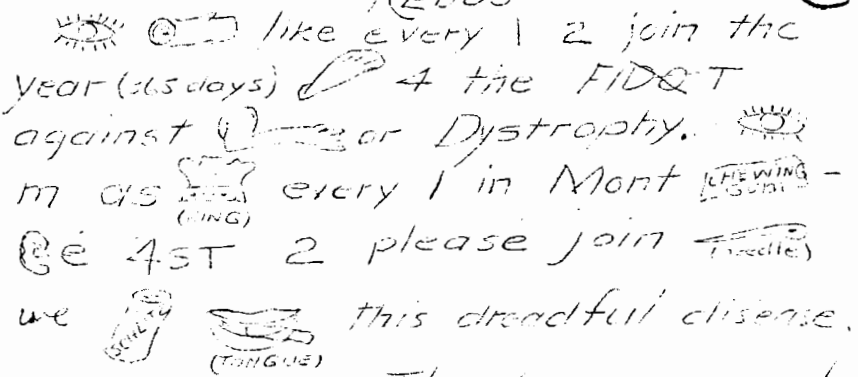 REBUS
like every 1 2 join the
year (365 days) 4 the FIDQT
against or Dystrophy.
m as every 1 in Mont CHEWING GUM -
(KING)
é 4ST 2 please join
(needle)
we SCHLITZ this dreadful disease.
(TONGUE)